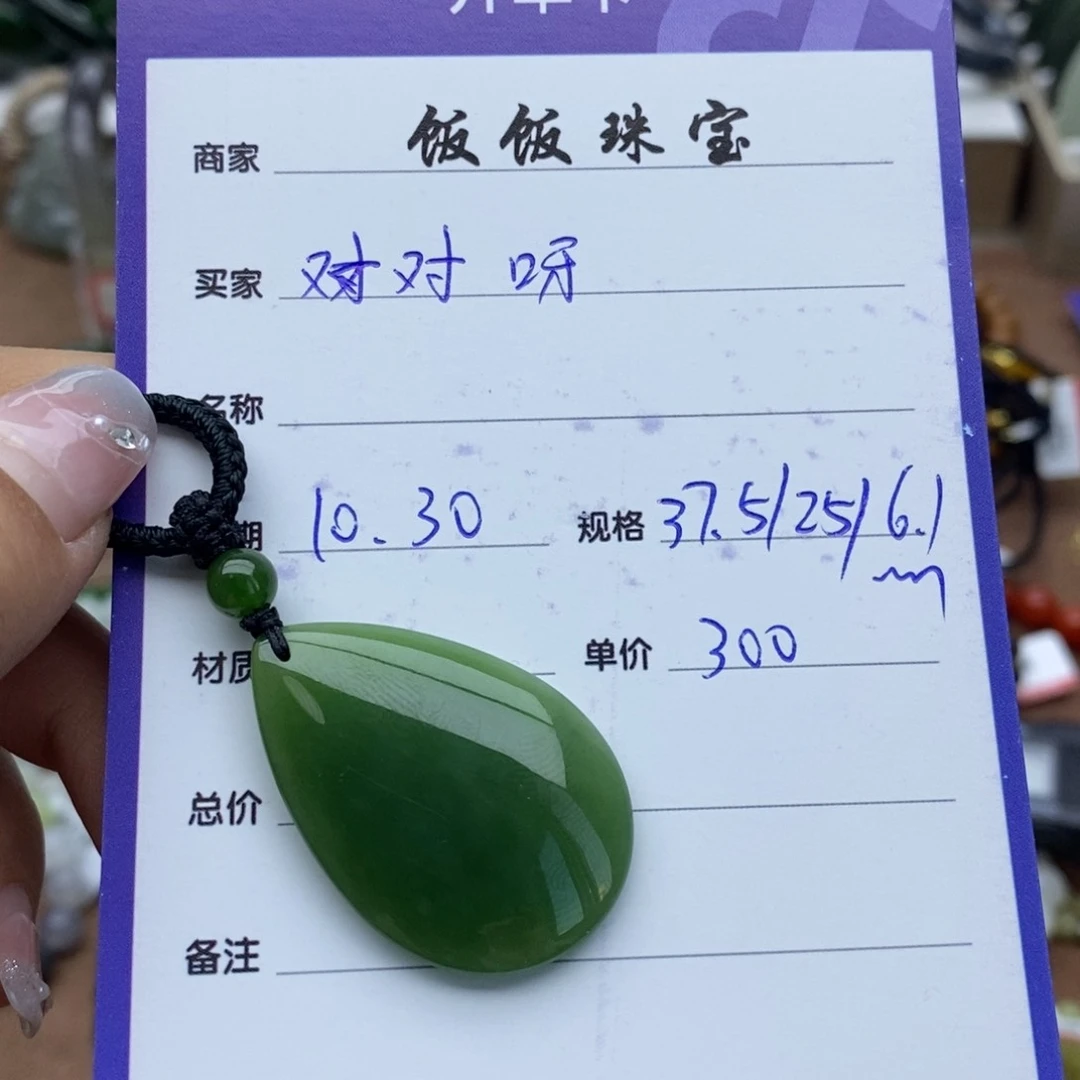 商家 饭饭珠宝
买家 对对呀
名称
期 10.30 规格 37.5/25/6.1
材质 单价 300
总价
备注